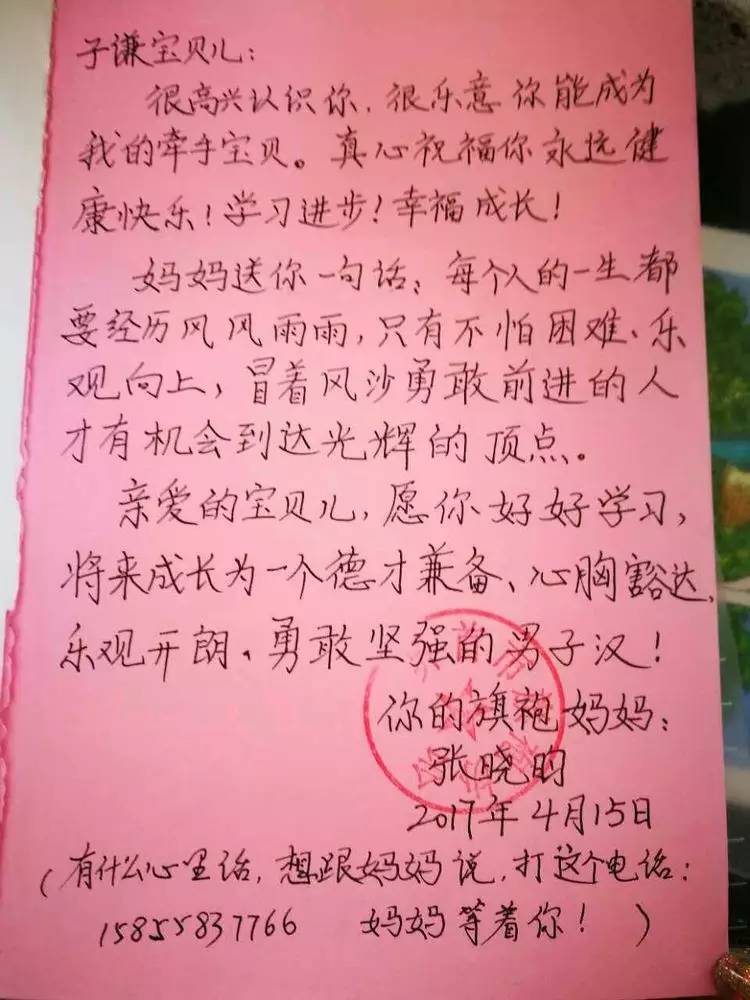 子谦宝贝儿：
很高兴认识你，很乐意你能成为
我的牵手宝贝。真心祝福你永远健
康快乐！学习进步！幸福成长！
妈妈送你一句话：每个人的一生都
要经历风风雨雨，只有不怕困难、乐
观向上，冒着风沙勇敢前进的人
才有机会到达光辉的顶点。
亲爱的宝贝儿，愿你好好学习，
将来成长为一个德才兼备、心胸豁达、
乐观开朗、勇敢坚强的男子汉！
你的旗袍妈妈：
张晓昀
2017年4月15日
（有什么心里话，想跟妈妈说，打这个电话：
15855837766 妈妈等着你！）